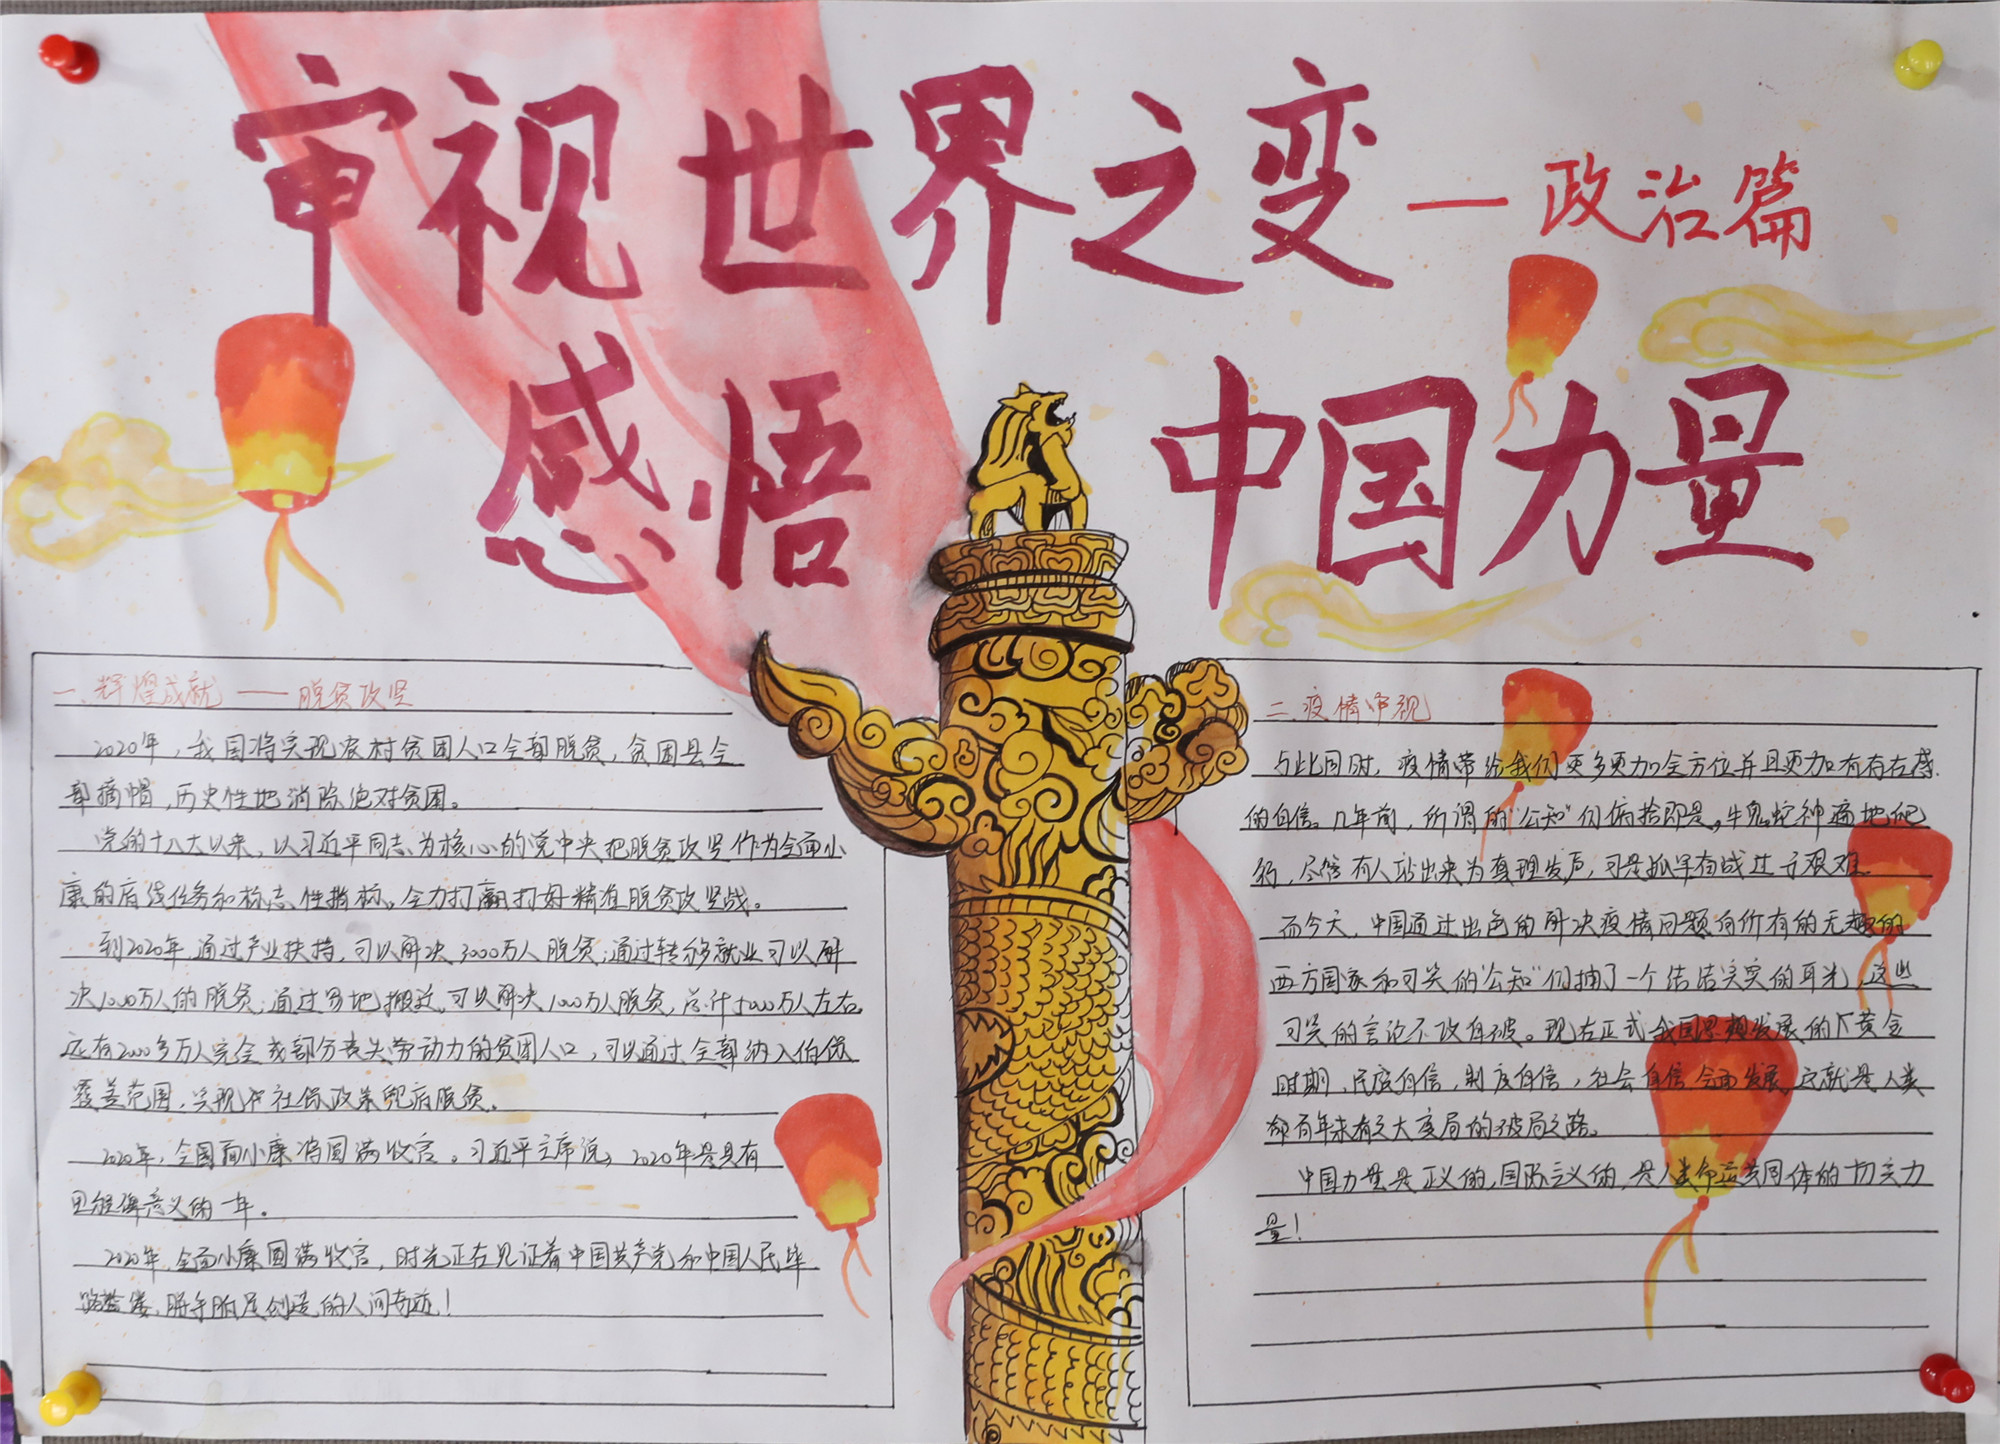 审视世界之变—政治篇
感悟 中国力量
一、辉煌成就——脱贫攻坚
2020年，我国将实现农村贫困人口全部脱贫，贫困县全
部摘帽，历史性地消除绝对贫困。
党的十八大以来，以习近平同志为核心的党中央把脱贫攻坚作为全面小
康的底线任务和标志性指标。全力打赢打好精准脱贫攻坚战。
到2020年，通过产业扶持，可以解决3000万人脱贫；通过转移就业可以解
决1000万人的脱贫；通过易地搬迁，可以解决1000万人脱贫，总计5000万人左右。
还有2000多万人完全或部分丧失劳动力的贫困人口，可以通过全部纳入低保
覆盖范围，实现社保政策兜底脱贫。
2020年，全国面小康将圆满收官。习近平主席说，2020年是具有
里程碑意义的一年。
2020年，全面小康圆满收官，时光正在见证着中国共产党和中国人民筚
路蓝缕、胼手胝足创造的人间奇迹！
二、疫情审视
与此同时，疫情带给我们更多更加全方位并且更加有有右感
的自信。几年前，所谓的“公知”们俯拾即是，牛鬼蛇神遍地爬
行，尽管有人站出来为真理发声，可是孤军奋战过于艰难。
而今天，中国通过出色的解决疫情问题向所有的无趣的
西方国家和可笑的“公知”们捕了一个结结实实的耳光，这些
可笑的言论不攻自破。现在正式我国思想发展的黄金
时期，民族自信，制度自信，社会自信，全面发展，这就是人类
命百年未有之大变局的破局之路。
中国力量是正义的，国际主义的，是人类命运共同体的切实力
量！